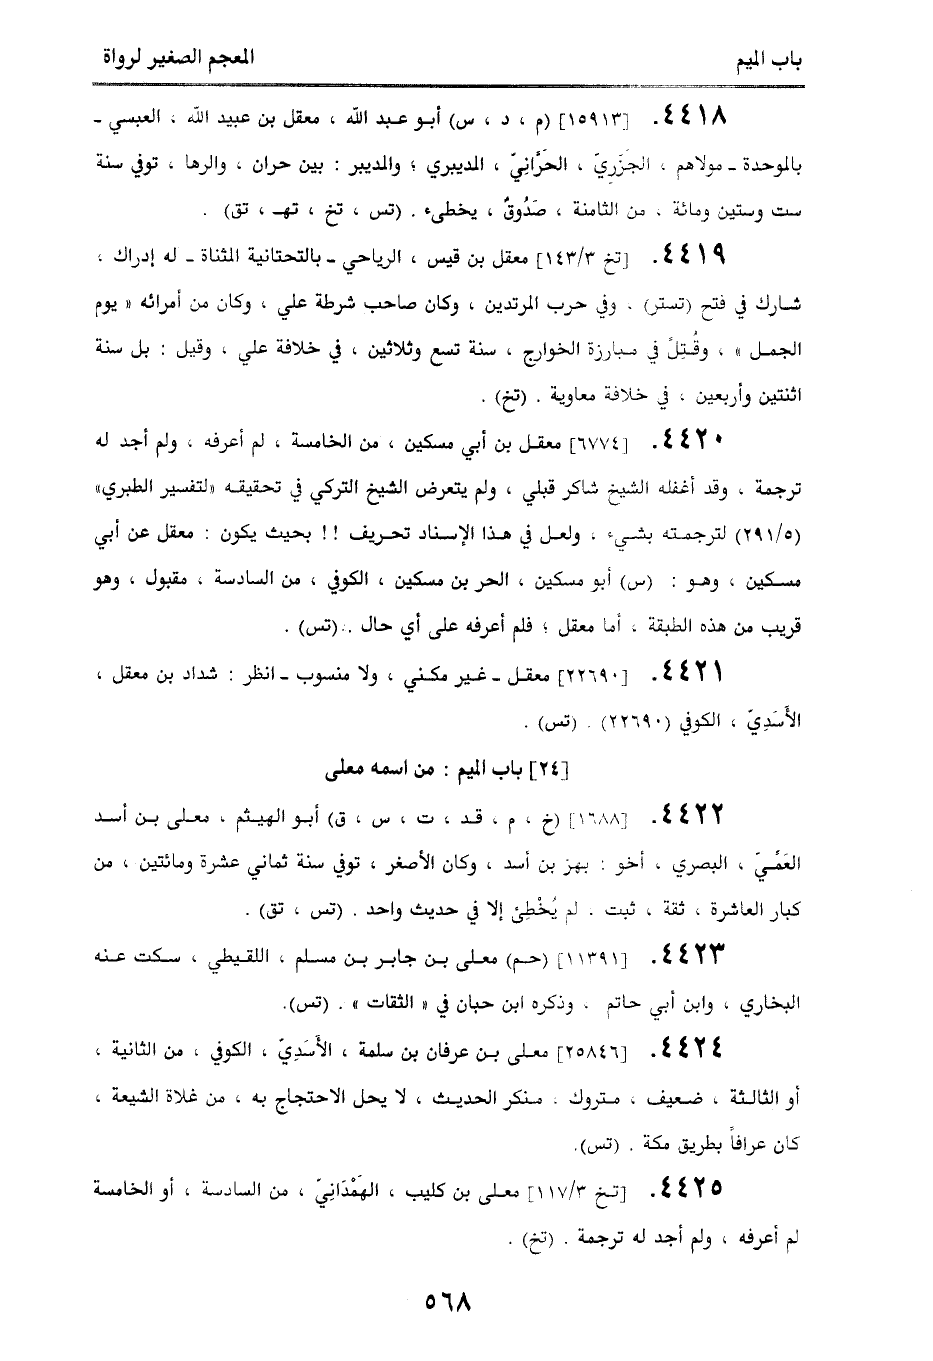 باب الميم
المعجم الصغير لرواة
٤٤١٨. [١٥٩١٣] (م ، د ، س) أبو عبد الله ، معقل بن عبيد الله ، العبسي ـ
بالموحدة ـ مولاهم ، الجَزَرِيّ ، الحَرَّانِيّ ، الدبيري ؛ والدبير : بين حران ، والرها ، توفي سنة
ست وستين ومائة ، من الثامنة ، صَدُوقٌ ، يخطىء . (تس ، تخ ، تهـ ، تق) .
٤٤١٩. [تخ ١٤٣/٣] معقل بن قيس ، الرياحي ـ بالتحتانية المثناة ـ له إدراك ،
شارك في فتح (تستر) ، وفي حرب المرتدين ، وكان صاحب شرطة علي ، وكان من أمرائه « يوم
الجمل » ، وقُتِلَ في مبارزة الخوارج ، سنة تسع وثلاثين ، في خلافة علي ، وقيل : بل سنة
اثنتين وأربعين ، في خلافة معاوية . (تخ) .
٤٤٢٠. [٦٧٧٤] معقل بن أبي مسكين ، من الخامسة ، لم أعرفه ، ولم أجد له
ترجمة ، وقد أغفله الشيخ شاكر قبلي ، ولم يتعرض الشيخ التركي في تحقيقه «لتفسير الطبري»
(٢٩١/٥) لترجمته بشيء ، ولعل في هذا الإسناد تحريف !! بحيث يكون : معقل عن أبي
مسكين ، وهو : (س) أبو مسكين ، الحر بن مسكين ، الكوفي ، من السادسة ، مقبول ، وهو
قريب من هذه الطبقة ، أما معقل ؛ فلم أعرفه على أي حال .. (تس) .
٤٤٢١. [٢٢٦٩٠] معقل ـ غير مكني ، ولا منسوب ـ انظر : شداد بن معقل ،
الأَسَدِيّ ، الكوفي (٢٢٦٩٠) . (تس) .
[٢٤] باب الميم : من اسمه معلى
٤٤٢٢. [١٦٨٨] (خ ، م ، قد ، ت ، س ، ق) أبو الهيثم ، معلى بن أسد
العَمِّيّ ، البصري ، أخو : بهز بن أسد ، وكان الأصغر ، توفي سنة ثماني عشرة ومائتين ، من
كبار العاشرة ، ثقة ، ثبت . لم يُخْطِئ إلا في حديث واحد . (تس ، تق) .
٤٤٢٣. [١١٣٩١] (حم) معلى بن جابر بن مسلم ، اللقيطي ، سكت عنه
البخاري ، وابن أبي حاتم ، وذكره ابن حبان في « الثقات » . (تس).
٤٤٢٤. [٢٥٨٤٦] معلى بن عرفان بن سلمة ، الأَسَدِيّ ، الكوفي ، من الثانية ،
أو الثالثة ، ضعيف ، متروك . منكر الحديث ، لا يحل الاحتجاج به ، من غلاة الشيعة ،
كان عرافاً بطريق مكة . (تس).
٤٤٢٥. [تخ ١١٧/٣] معلى بن كليب ، الهَمْدَانِيّ ، من السادسة ، أو الخامسة
لم أعرفه ، ولم أجد له ترجمة . (تخ) .
٥٦٨